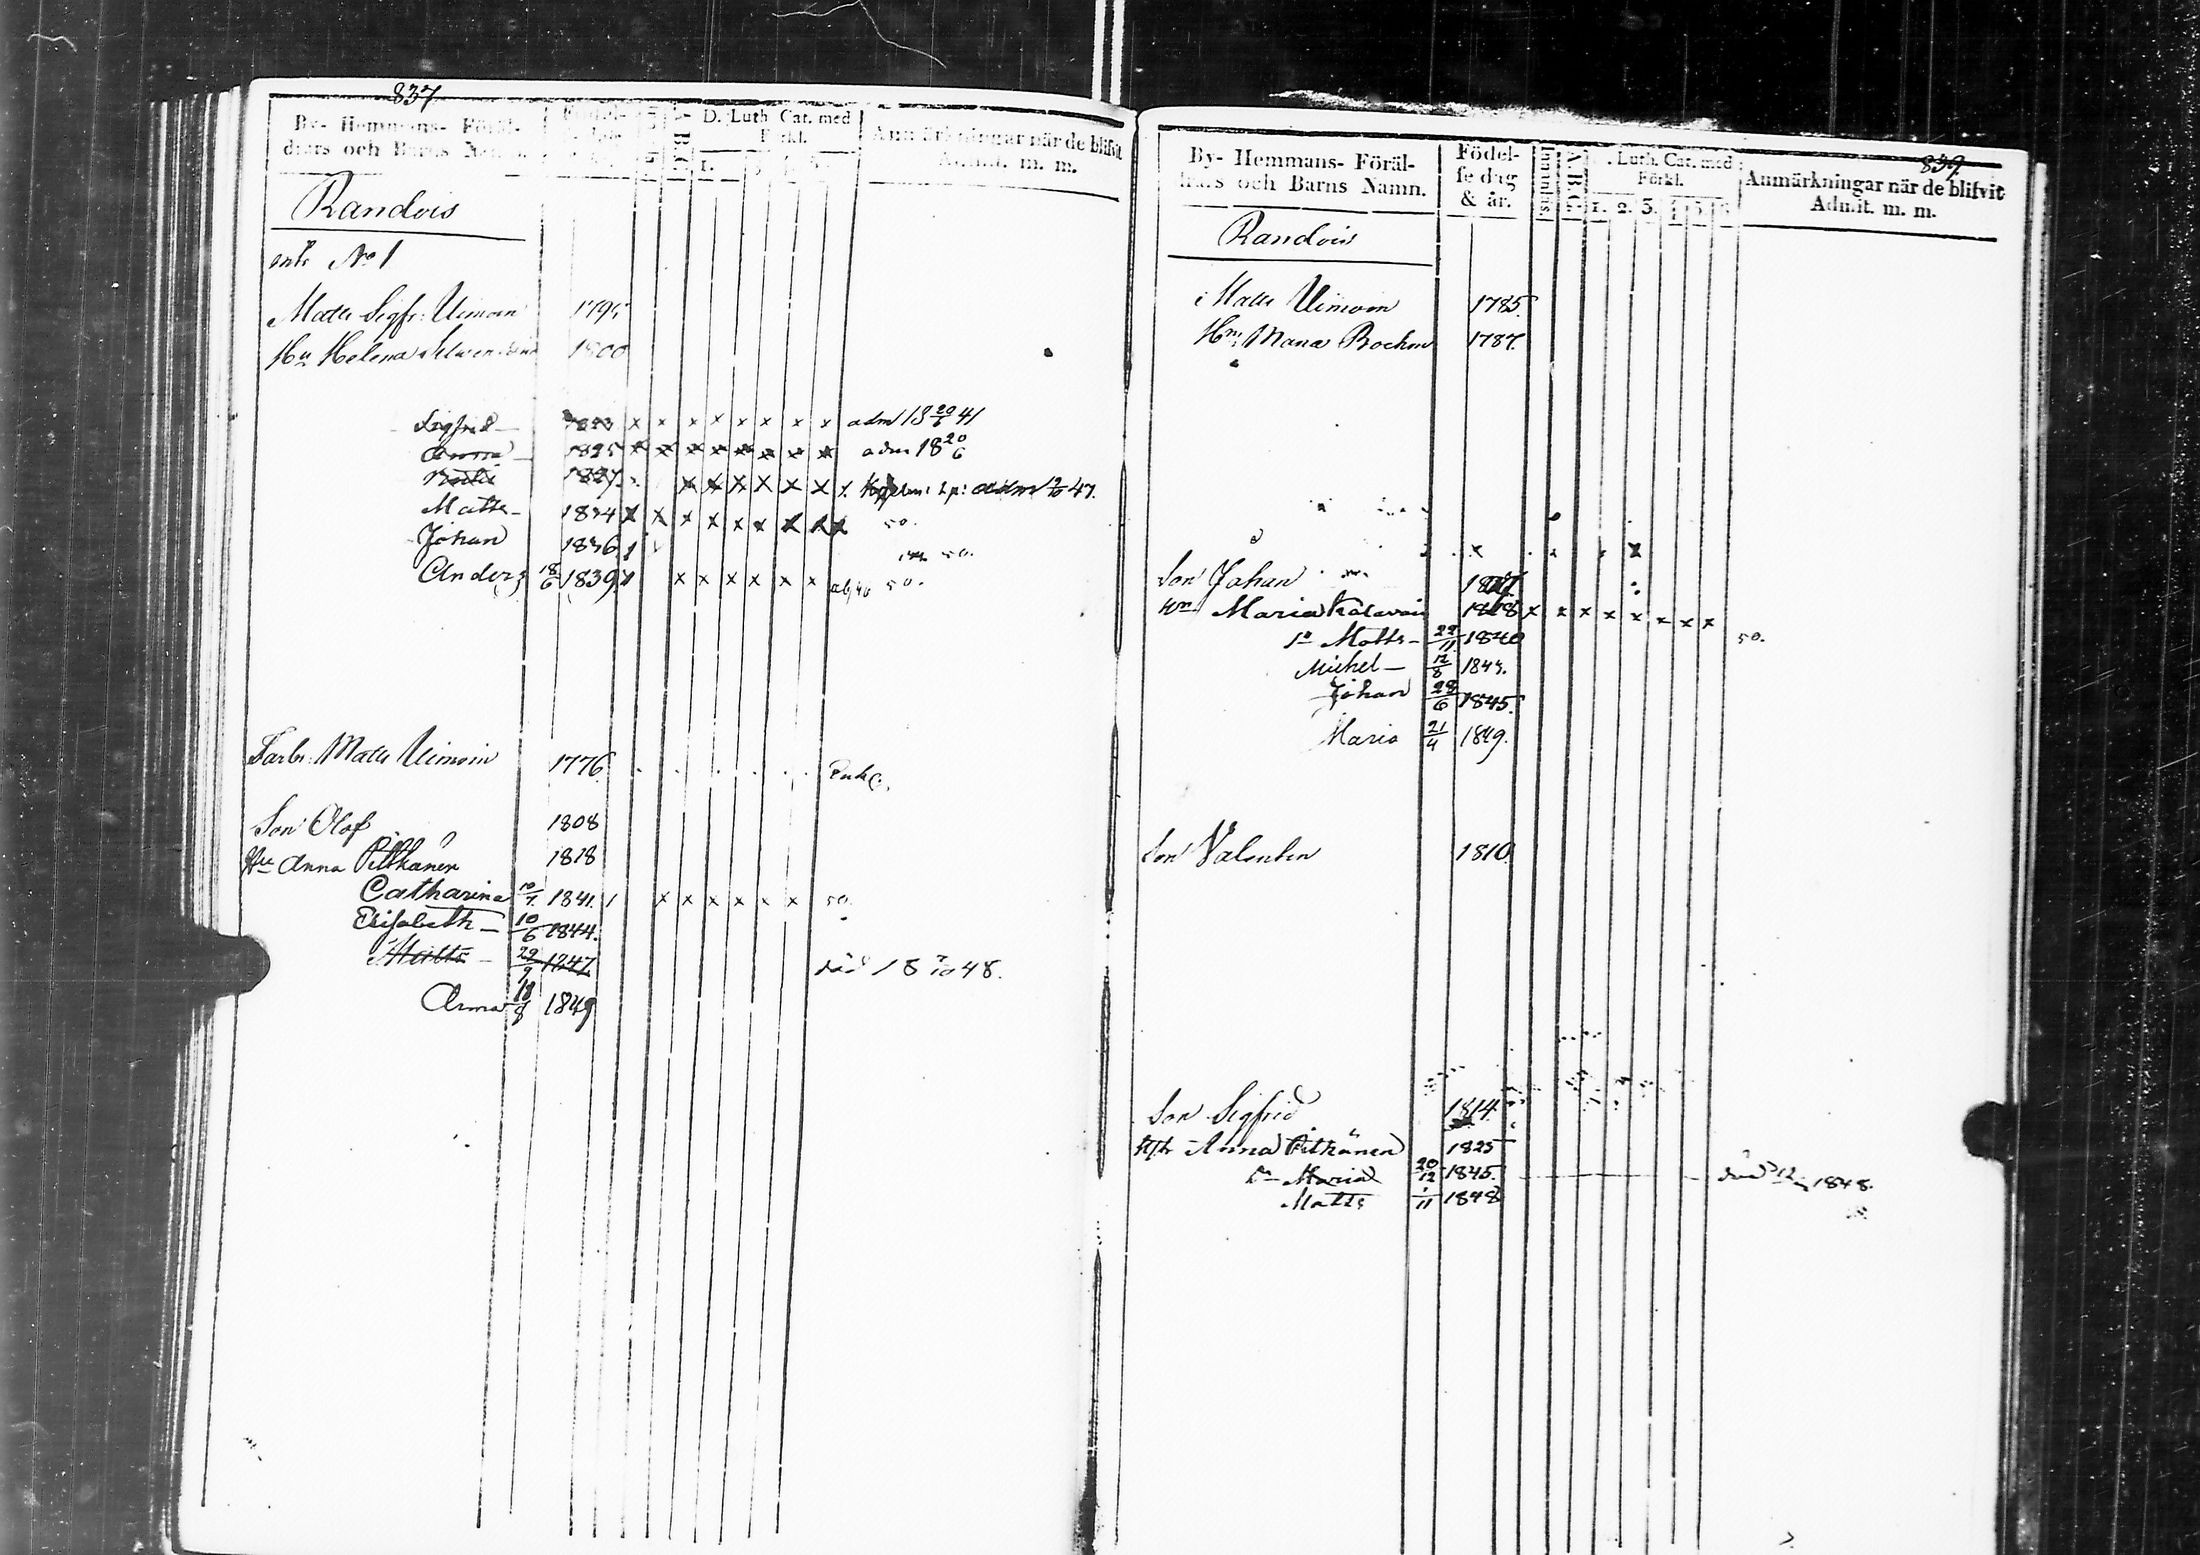 837
By- Hemmans- Föräl-
drars och Barns Namn.
D. Luth. Cat. med
Förkl.
Anmärkningar när de blifvit
Admit. m. m.
Randois
No 1
Matts Sigfr: Uimoin 1795
Hu Helena 1800
Sigfrid 1823 x x x x x x x x adm 18 20/6 41
Anna 1825 x x x x x x x x adm 18 20/6
1827 x x x x x x adm 47.
Matts 1834 x x x x x x x x x 50.
Johan 1836 50.
Anders 18/6 1839 x x x x x x 50.
Farbr: Matts Uimoin 1776
Son Olof 1808
Hu Anna Pitkänen 1818
Catharina 10/7 1841. x x x x x x 50.
Elisabeth 10/6 1844.
Matts 29/9 1847 död 18 7/10 48.
Anna 18/8 1849
839.
By- Hemmans- Föräl-
drars och Barns Namn.
Födel-
se dag
& år.
Inn. i läs.
A.B.C.
Luth. Cat. med
Förkl.
1. 2. 3. 4. 5.
Anmärkningar när de blifvit
Admit. m. m.
Randois
Matts Uimoin 1785.
Hu Maria 1787.
Son Johan
Hu Maria x x x x x x x x
Sn Matts 22/11 1840 50.
Michel 12/8
Johan 28/6 1845.
Maria 21/4 1849.
Son Valentin 1810
Son Sigfrid 1814
Anna Pitkänen 1825
Maria 20/12 1845. död 1848.
Matts 1/11 1848